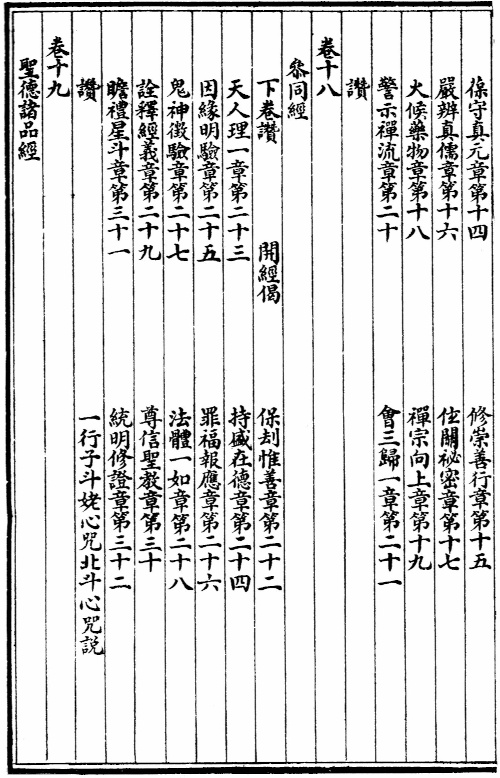 葆守真元章第十四　修崇善行章第十五
嚴辨真儒章第十六　住關祕密章第十七
火候藥物章第十八　禪宗向上章第十九
警示禪流章第二十　會三歸一章第二十一
讚
卷十八
叅同經
下卷讚　開經偈　保刦惟善章第二十二
天人理一章第二十三　持盛在德章第二十四
因緣明驗章第二十五　罪福報應章第二十六
鬼神徵驗章第二十七　法體一如章第二十八
詮釋經義章第二十九　尊信聖教章第三十
瞻禮星斗章第三十一　統明修證章第三十二
讚　一行子斗姥心咒北斗心咒説
卷十九
聖德諸品經